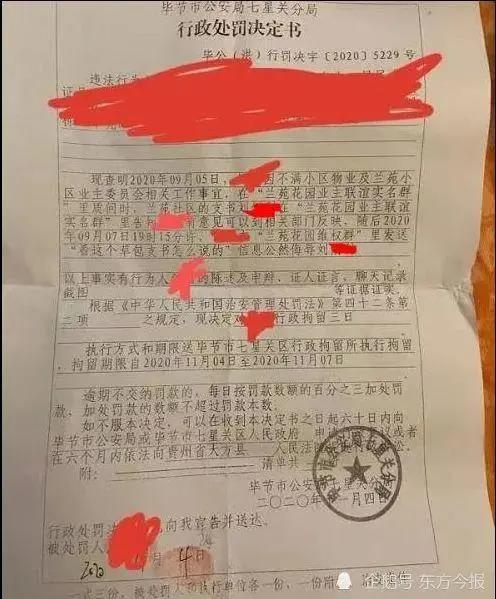 毕节市公安局七星关分局
行政处罚决定书
毕公（洪）行罚决字〔2020〕5229号
违法行为
现查明2020年09月05日， 因不满小区物业及兰苑小
区业主委员会相关工作事宜，在“兰苑花园业主联谊实名群”
里质问时， 社区的支书刘 在“兰苑花园业主联谊
实名群”里告 有意见可以到相关部门反映，随后2020
年09月07日19时15分许， “兰苑花园维权群”里发送
“看这个草包支书怎么说的”信息公然侮辱刘
以上事实有行为人 的陈述及申辩、证人证言、聊天记录
截图 等证据证实。
根据《中华人民共和国治安管理处罚法》第四十二条第
二项 之规定，现决定对 行政拘留三日
执行方式和期限送毕节市七星关区行政拘留所执行拘留
，拘留期限自2020年11月04日至2020年11月07日
逾期不交纳罚款的，每日按罚款数额的百分之三加处罚
款，加处罚款的数额不超过罚款本数。
如不服本决定，可以在收到本决定书之日起六十日内向
毕节市公安局或毕节市七星关区人民政府 申 议或者
在六个月内依法向贵州省大方县 人民法 讼。
附： 清单共
毕节市公安局七星关分局
二〇二〇年 一月四日
行政处罚决 已向我宣告并送达。
被处罚人
202 月 4 日
一式三份，被处罚人和执行单位各一份，一份附
企鹅号 东方今报